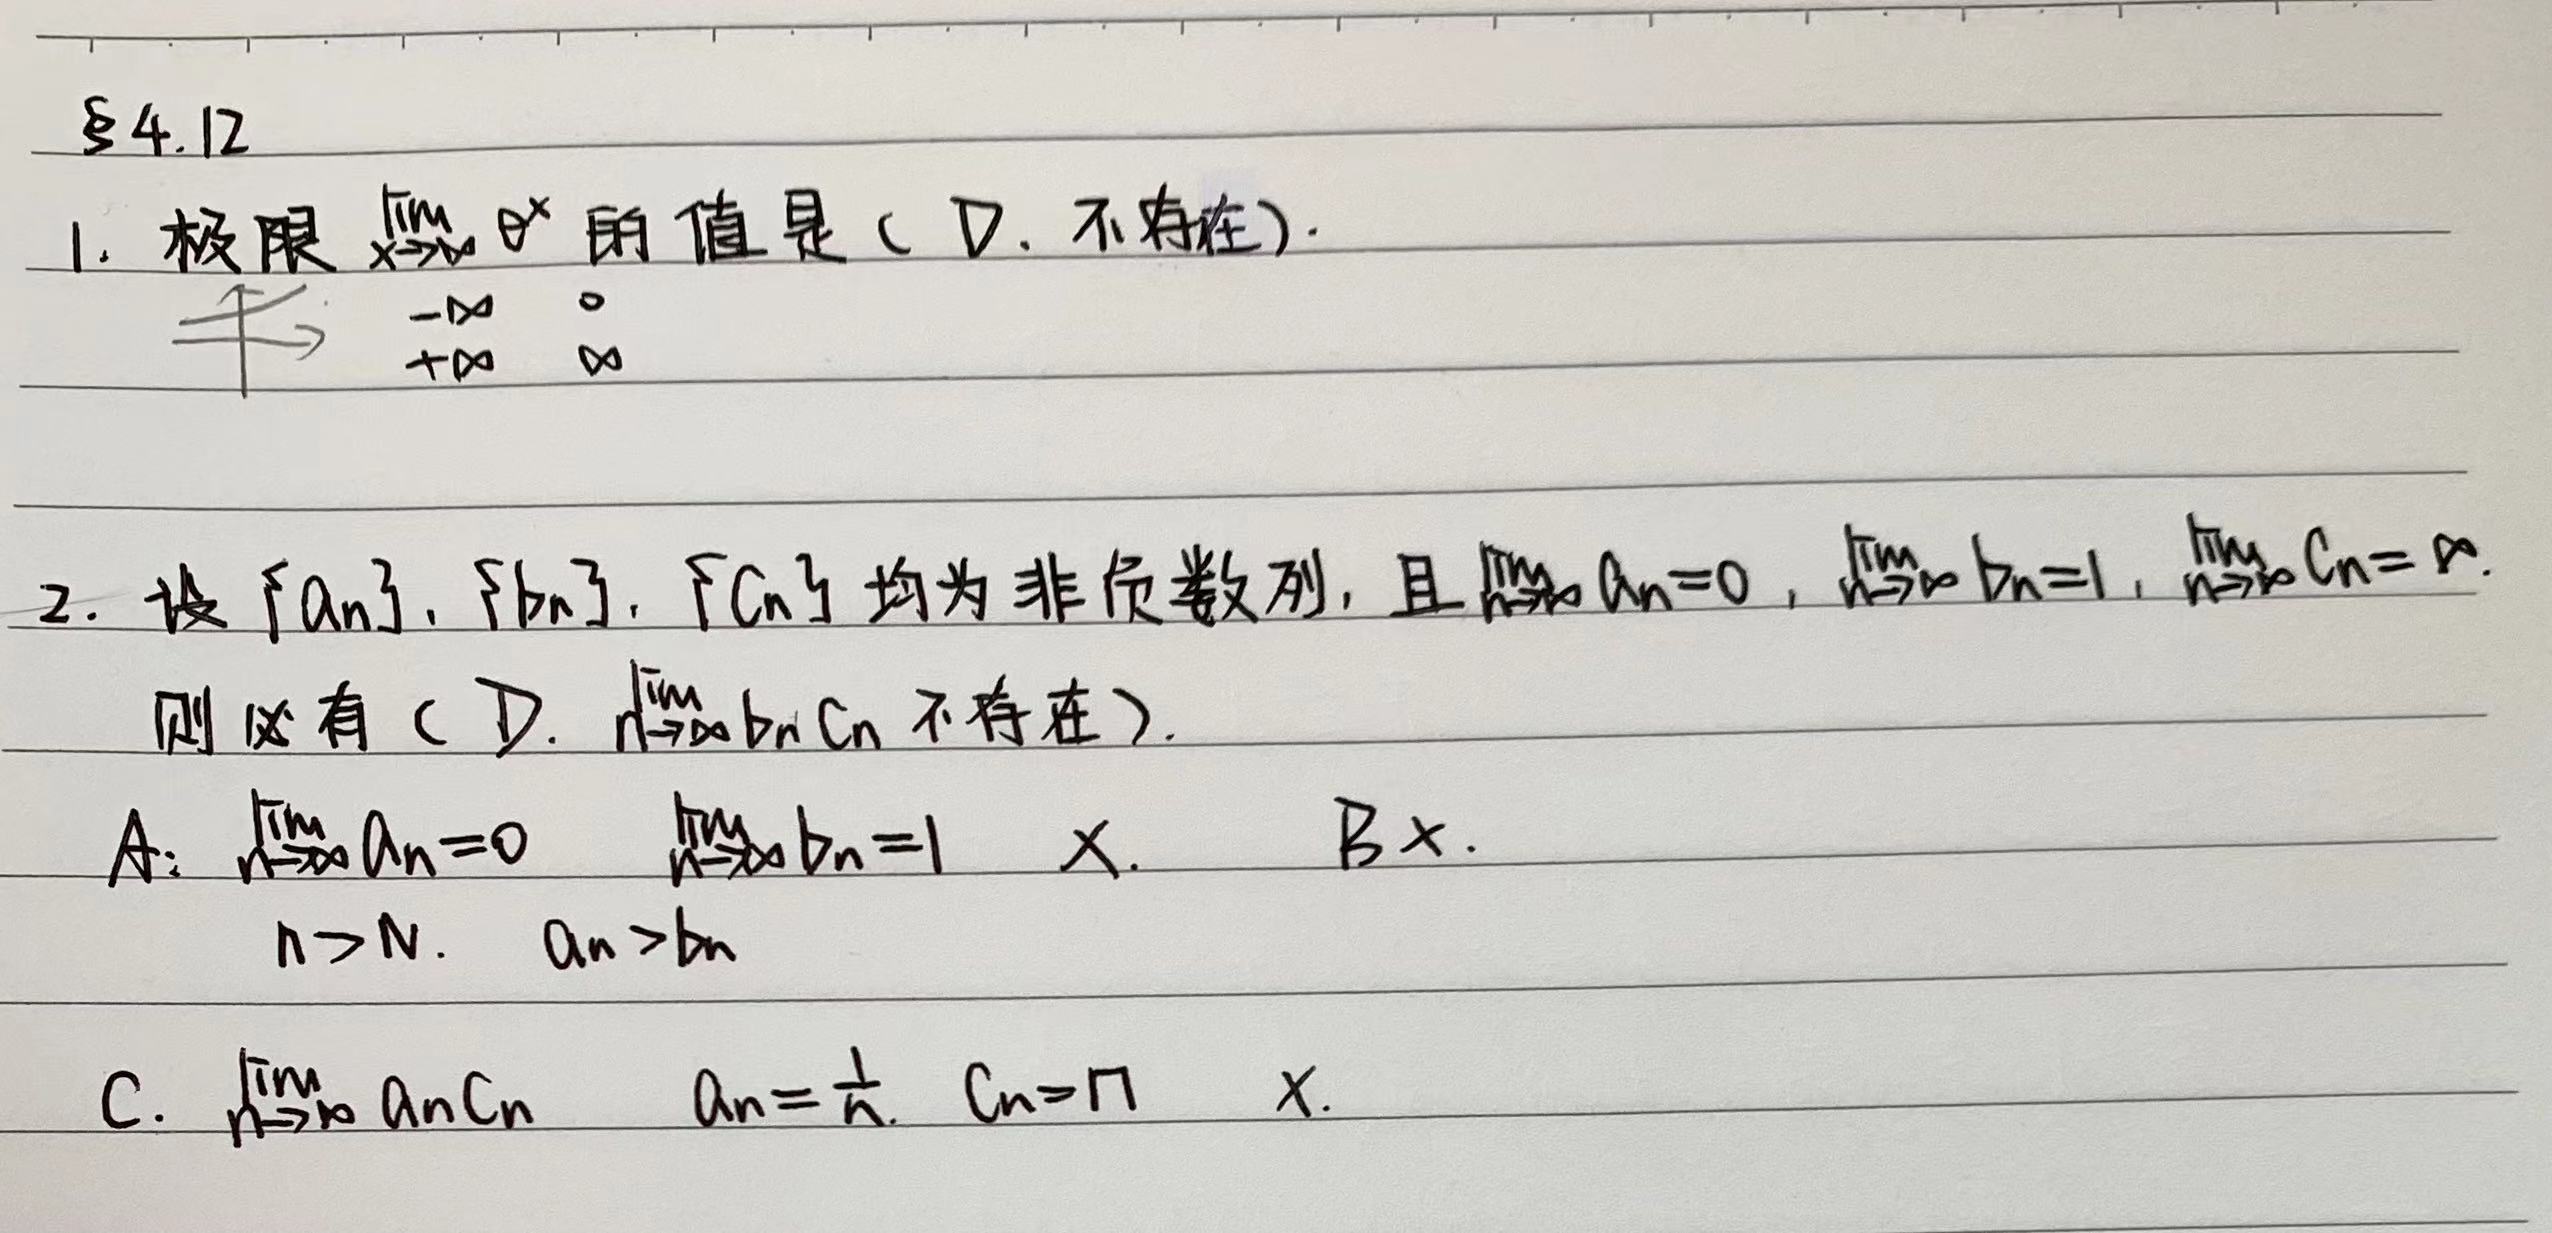 §4.12
1. 极限 lim x→∞ e^x 的值是 ( D. 不存在).
-∞ 0
+∞ ∞
2. 设 {an}, {bn}, {Cn} 均为非负数列, 且 lim n→∞ an=0, lim n→∞ bn=1, lim n→∞ Cn=∞.
则必有 ( D. lim n→∞ bn Cn 不存在).
A: lim n→∞ an=0 lim n→∞ bn=1 ×. B ×.
n>N. an>bn
C. lim n→∞ an Cn an=1/n. Cn=n ×.